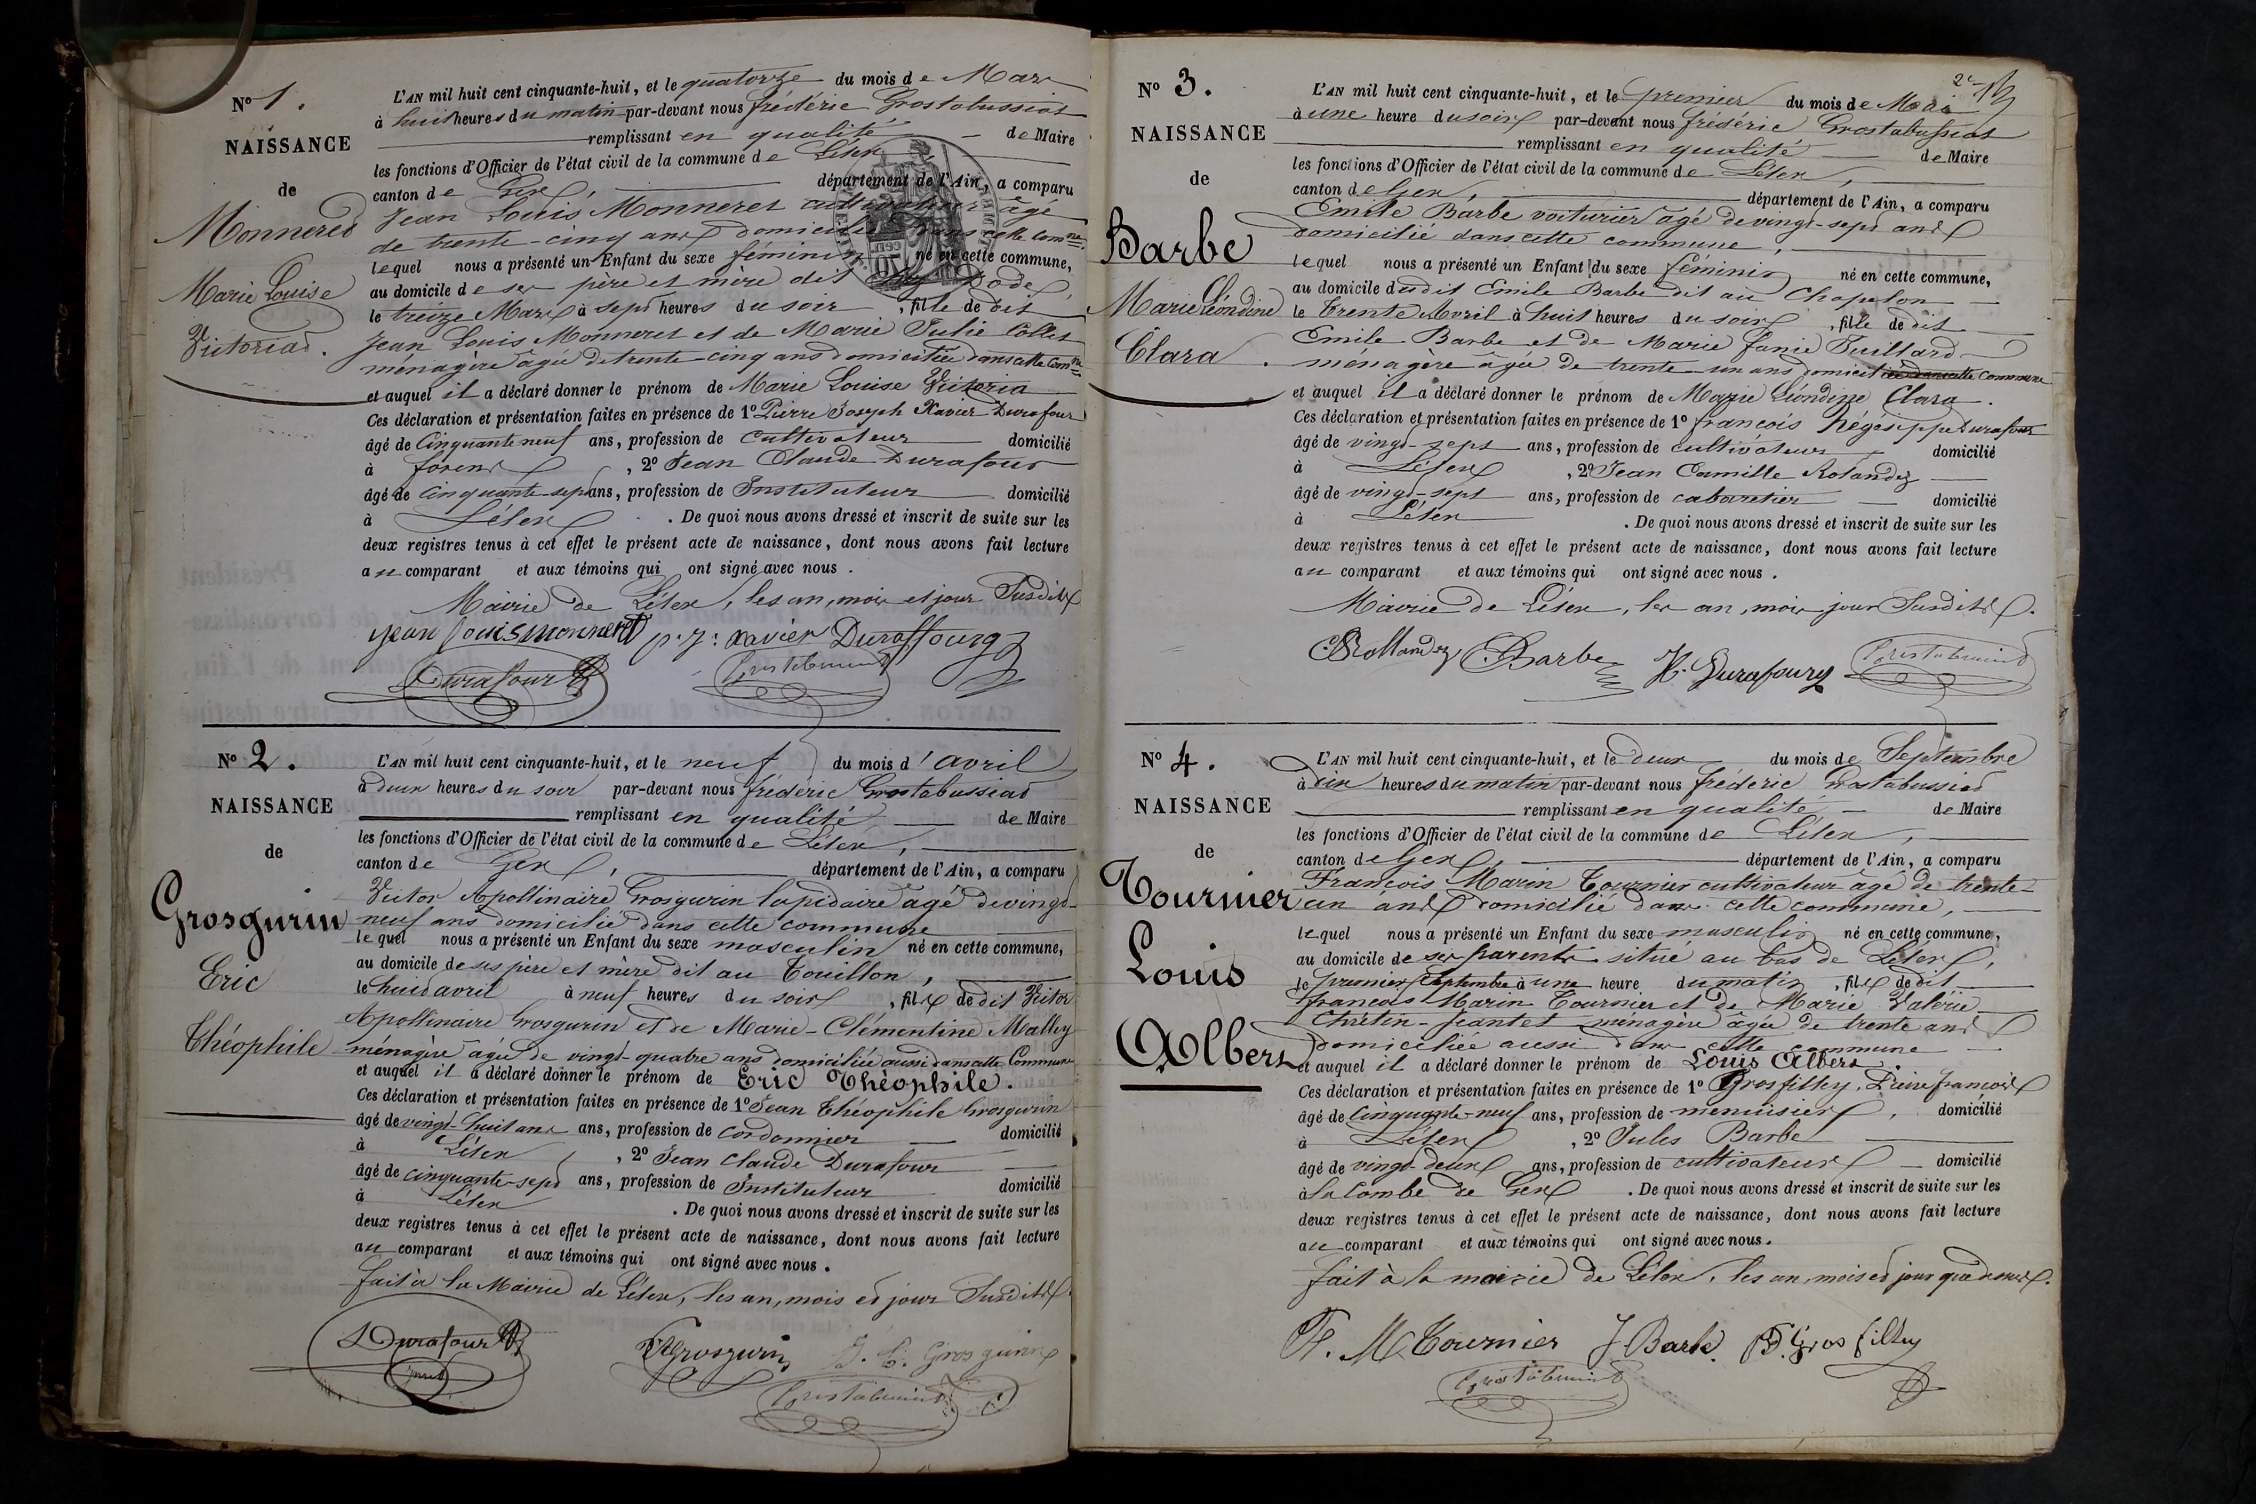 Nº 1.
NAISSANCE
de
Monneret
Marie Louise
Victoria.
L'AN mil huit cent cinquante-huit, et le quatorze du mois de Mars
à huit heures du matin par-devant nous frédéric Grostabussiat
remplissant en qualité de Maire
les fonctions d'Officier de l'état civil de la commune de Lélex,
canton de Gex, département de l'Ain, a comparu
Jean Louis Monneret cultivateur âgé
de trente-cinq ans domicilié dans cette comne.
lequel nous a présenté un Enfant du sexe féminin né en cette commune,
au domicile de ses père et mère dit
le treize Mars à sept heures du soir, fille de dit
Jean Louis Monneret et de Marie Julie Collet
ménagère âgée de trente-cinq ans domiciliée dans cette comne
et auquel il a déclaré donner le prénom de Marie Louise Victoria
Ces déclaration et présentation faites en présence de 1º Pierre Joseph Xavier Durafour
âgé de Cinquante neuf ans, profession de cultivateur domicilié
à , 2º Jean Claude Durafour
âgé de cinquante-sept ans, profession de Instituteur domicilié
à Lélex. De quoi nous avons dressé et inscrit de suite sur les
deux registres tenus à cet effet le présent acte de naissance, dont nous avons fait lecture
au comparant et aux témoins qui ont signé avec nous.
Mairie de Lélex, les an, mois et jour Susdits
jean louis monneret p. j: xavier Duraffourg
Durafour Grostabussiat
Nº 2.
NAISSANCE
de
Grosgurin
Eric
Théophile
L'AN mil huit cent cinquante-huit, et le neuf du mois d'avril
à deux heures du soir par-devant nous frédéric Grostabussiat
remplissant en qualité de Maire
les fonctions d'Officier de l'état civil de la commune de Lélex,
canton de Gex, département de l'Ain, a comparu
Victor Apollinaire Grosgurin lapidaire âgé de vingt-
neuf ans domicilié dans cette commune
lequel nous a présenté un Enfant du sexe masculin né en cette commune,
au domicile de ses père et mère dit au Touillon,
le huit avril à neuf heures du soir, fils de dit Victor
Apollinaire Grosgurin et de Marie-Clémentine Malley
ménagère âgée de vingt-quatre ans domiciliée aussi dans cette Commune
et auquel il a déclaré donner le prénom de Eric Théophile.
Ces déclaration et présentation faites en présence de 1º Jean Théophile Grosgurin
âgé de vingt-huit ans ans, profession de cordonnier domicilié
à Lélex, 2º Jean Claude Durafour
âgé de cinquante-sept ans, profession de Instituteur domicilié
à Lélex. De quoi nous avons dressé et inscrit de suite sur les
deux registres tenus à cet effet le présent acte de naissance, dont nous avons fait lecture
au comparant et aux témoins qui ont signé avec nous.
fait à la Mairie de Lélex, les an, mois et jour Susdits.
Durafour Grosgurin J. T. Grosgurin
Grostabussiat
Nº 3.
NAISSANCE
de
Barbe
Marie Léondine
Clara.
L'AN mil huit cent cinquante-huit, et le premier du mois de Mai
à une heure du soir par-devant nous frédéric Grostabussiat
remplissant en qualité de Maire
les fonctions d'Officier de l'état civil de la commune de Lélex,
canton de Gex, département de l'Ain, a comparu
Emile Barbe voiturier âgé de vingt-sept ans
domicilié dans cette commune,
lequel nous a présenté un Enfant du sexe féminin né en cette commune,
au domicile dudit Emile Barbe dit au Chapelon
le trente Avril à huit heures du soir, fille de dit
Emile Barbe et de Marie fanie Juillard
ménagère âgée de trente-un ans domiciliée dans cette commune
et auquel il a déclaré donner le prénom de Marie Léondine Clara.
Ces déclaration et présentation faites en présence de 1º françois Hégésippe Durafour
âgé de vingt-sept ans, profession de cultivateur domicilié
à Lélex, 2º Jean Camille Rolandez
âgé de vingt-sept ans, profession de cabaretier domicilié
à Lélex. De quoi nous avons dressé et inscrit de suite sur les
deux registres tenus à cet effet le présent acte de naissance, dont nous avons fait lecture
au comparant et aux témoins qui ont signé avec nous.
Mairie de Lélex, les an, mois jour Susdits.
C Rollandez Barbe H. Durafourg Grostabussiat
Nº 4.
NAISSANCE
de
Tournier
Louis
Albert
L'AN mil huit cent cinquante-huit, et le deux du mois de Septembre
à dix heures du matin par-devant nous frédéric Grostabussiat
remplissant en qualité de Maire
les fonctions d'Officier de l'état civil de la commune de Lélex,
canton de Gex, département de l'Ain, a comparu
François Marin Tournier cultivateur âgé de trente-
un ans domicilié dans cette commune,
lequel nous a présenté un Enfant du sexe masculin né en cette commune,
au domicile de ses parents situé au bas de Lélex,
le premier Septembre à une heure du matin, fils de dit
françois Marin Tournier et de Marie Valérie
Chrétin-Jeantet ménagère âgée de trente ans
domiciliée aussi dans cette commune
et auquel il a déclaré donner le prénom de Louis Albert.
Ces déclaration et présentation faites en présence de 1º Grosfilley, Pierre françois
âgé de Cinquante-neuf ans, profession de menuisier, domicilié
à Lélex, 2º Jules Barbe
âgé de vingt-deux ans, profession de cultivateur domicilié
à la Combe de Gex. De quoi nous avons dressé et inscrit de suite sur les
deux registres tenus à cet effet le présent acte de naissance, dont nous avons fait lecture
au comparant et aux témoins qui ont signé avec nous.
fait à la mairie de Lélex, les an, mois et jour que dessus.
F. M. Tournier J Barbe P. F. Gros filley
Grostabussiat